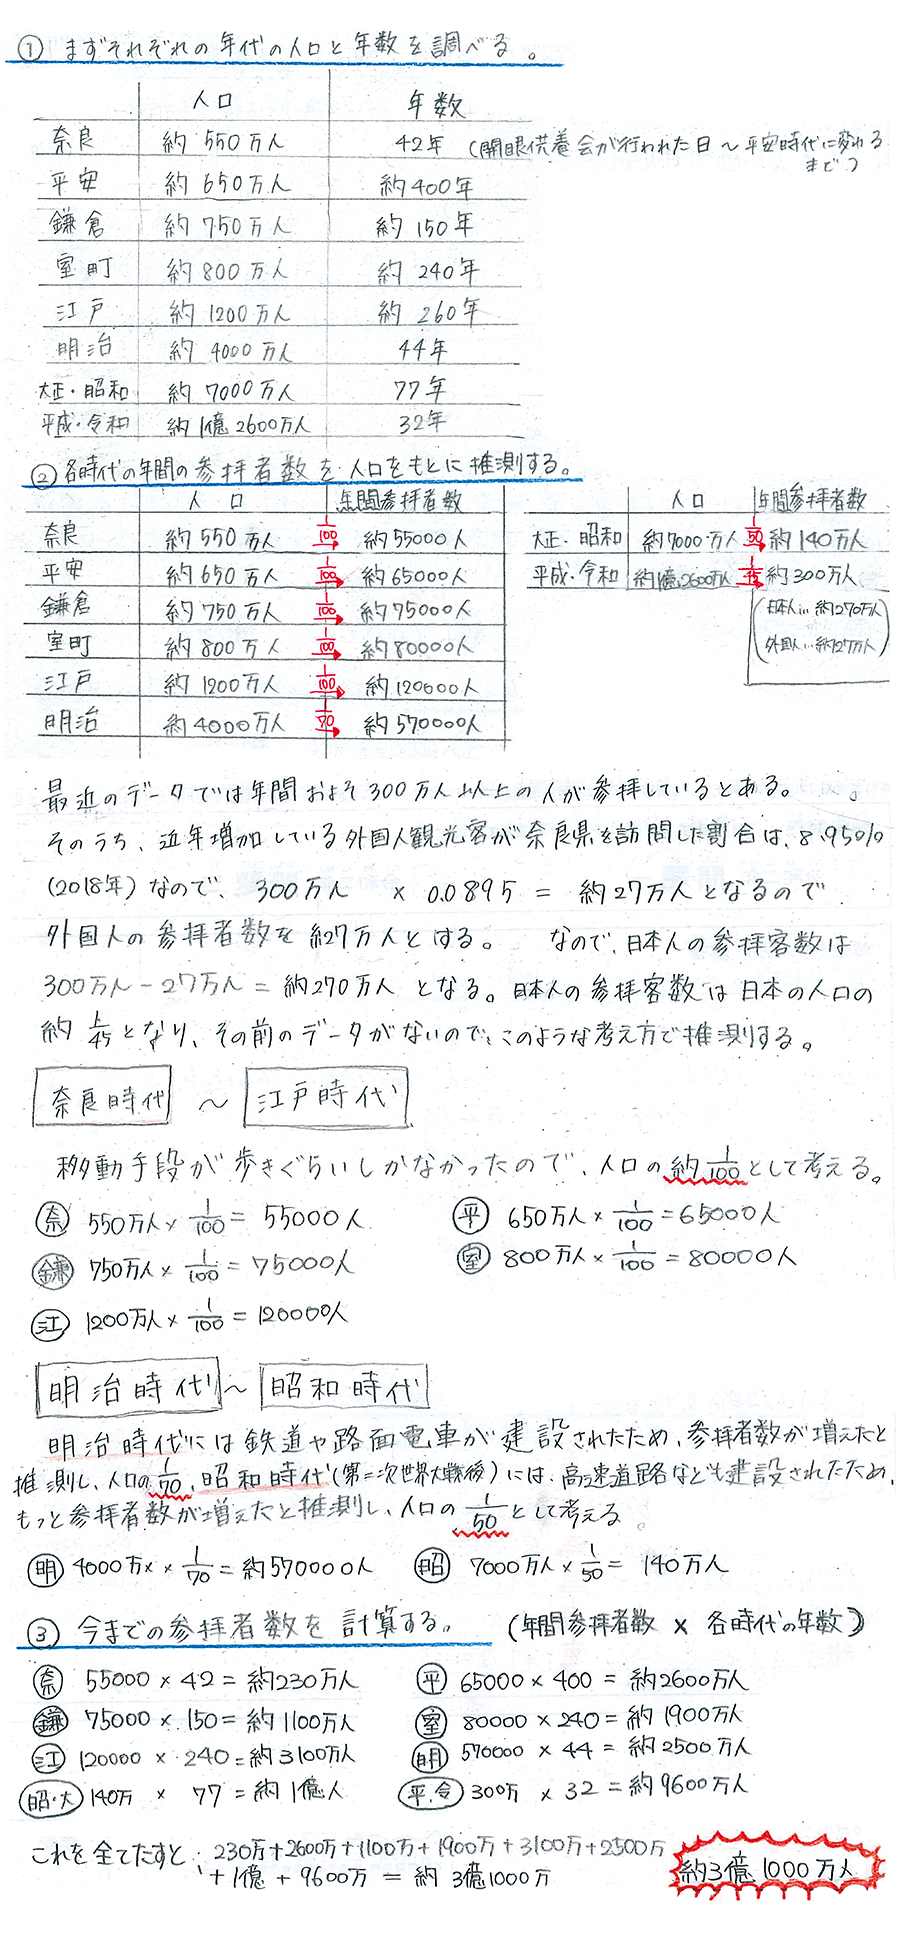 ① まずそれぞれの年代の人口と年数を調べる。
人口 年数
奈良 約550万人 42年 (開眼供養会が行われた日～平安時代に変わる
まで)
平安 約650万人 約400年
鎌倉 約750万人 約150年
室町 約800万人 約240年
江戸 約1200万人 約260年
明治 約4000万人 44年
大正・昭和 約7000万人 77年
平成・令和 約1億2600万人 32年
② 各時代の年間の参拝者数を人口をもとに推測する。
人口 年間参拝者数
奈良 約550万人 1/100 約55000人
平安 約650万人 1/100 約65000人
鎌倉 約750万人 1/100 約75000人
室町 約800万人 1/100 約80000人
江戸 約1200万人 1/100 約120000人
明治 約4000万人 1/70 約570000人
人口 年間参拝者数
大正・昭和 約7000万人 1/50 約140万人
平成・令和 約1億2600万人 1/45 約300万人
(日本人…約270万人
外国人…約27万人)
最近のデータでは年間およそ300万人以上の人が参拝しているとある。
そのうち、近年増加している外国人観光客が奈良県を訪問した割合は、8.95%
(2018年)なので、300万人 × 0.0895 = 約27万人となるので
外国人の参拝者数を約27万人とする。 なので、日本人の参拝客数は
300万人-27万人=約270万人となる。日本人の参拝客数は日本の人口の
約1/45となり、その前のデータがないので、このような考え方で推測する。
奈良時代 ～ 江戸時代
移動手段が歩きぐらいしかなかったので、人口の約1/100として考える。
奈 550万人×1/100=55000人 平 650万人×1/100=65000人
鎌 750万人×1/100=75000人 室 800万人×1/100=80000人
江 1200万人×1/100=120000人
明治時代～昭和時代
明治時代には鉄道や路面電車が建設されたため、参拝者数が増えたと
推測し、人口の1/70、昭和時代(第二次世界大戦後)には、高速道路なども建設されたため、
もっと参拝者数が増えたと推測し、人口の1/50として考える。
明 4000万××1/70=約570000人 昭 7000万人×1/50= 140万人
③ 今までの参拝者数を計算する。 (年間参拝者数 × 各時代の年数)
奈 55000×42=約230万人 平 65000×400=約2600万人
鎌 75000×150=約1100万人 室 80000×240=約1900万人
江 120000×240=約3100万人 明 570000×44=約2500万人
昭・大 140万 × 77=約1億人 平.令 300万 × 32=約9600万人
これを全てたすと、230万+2600万+1100万+1900万+3100万+2500万
+1億+9600万=約3億1000万
約3億1000万人